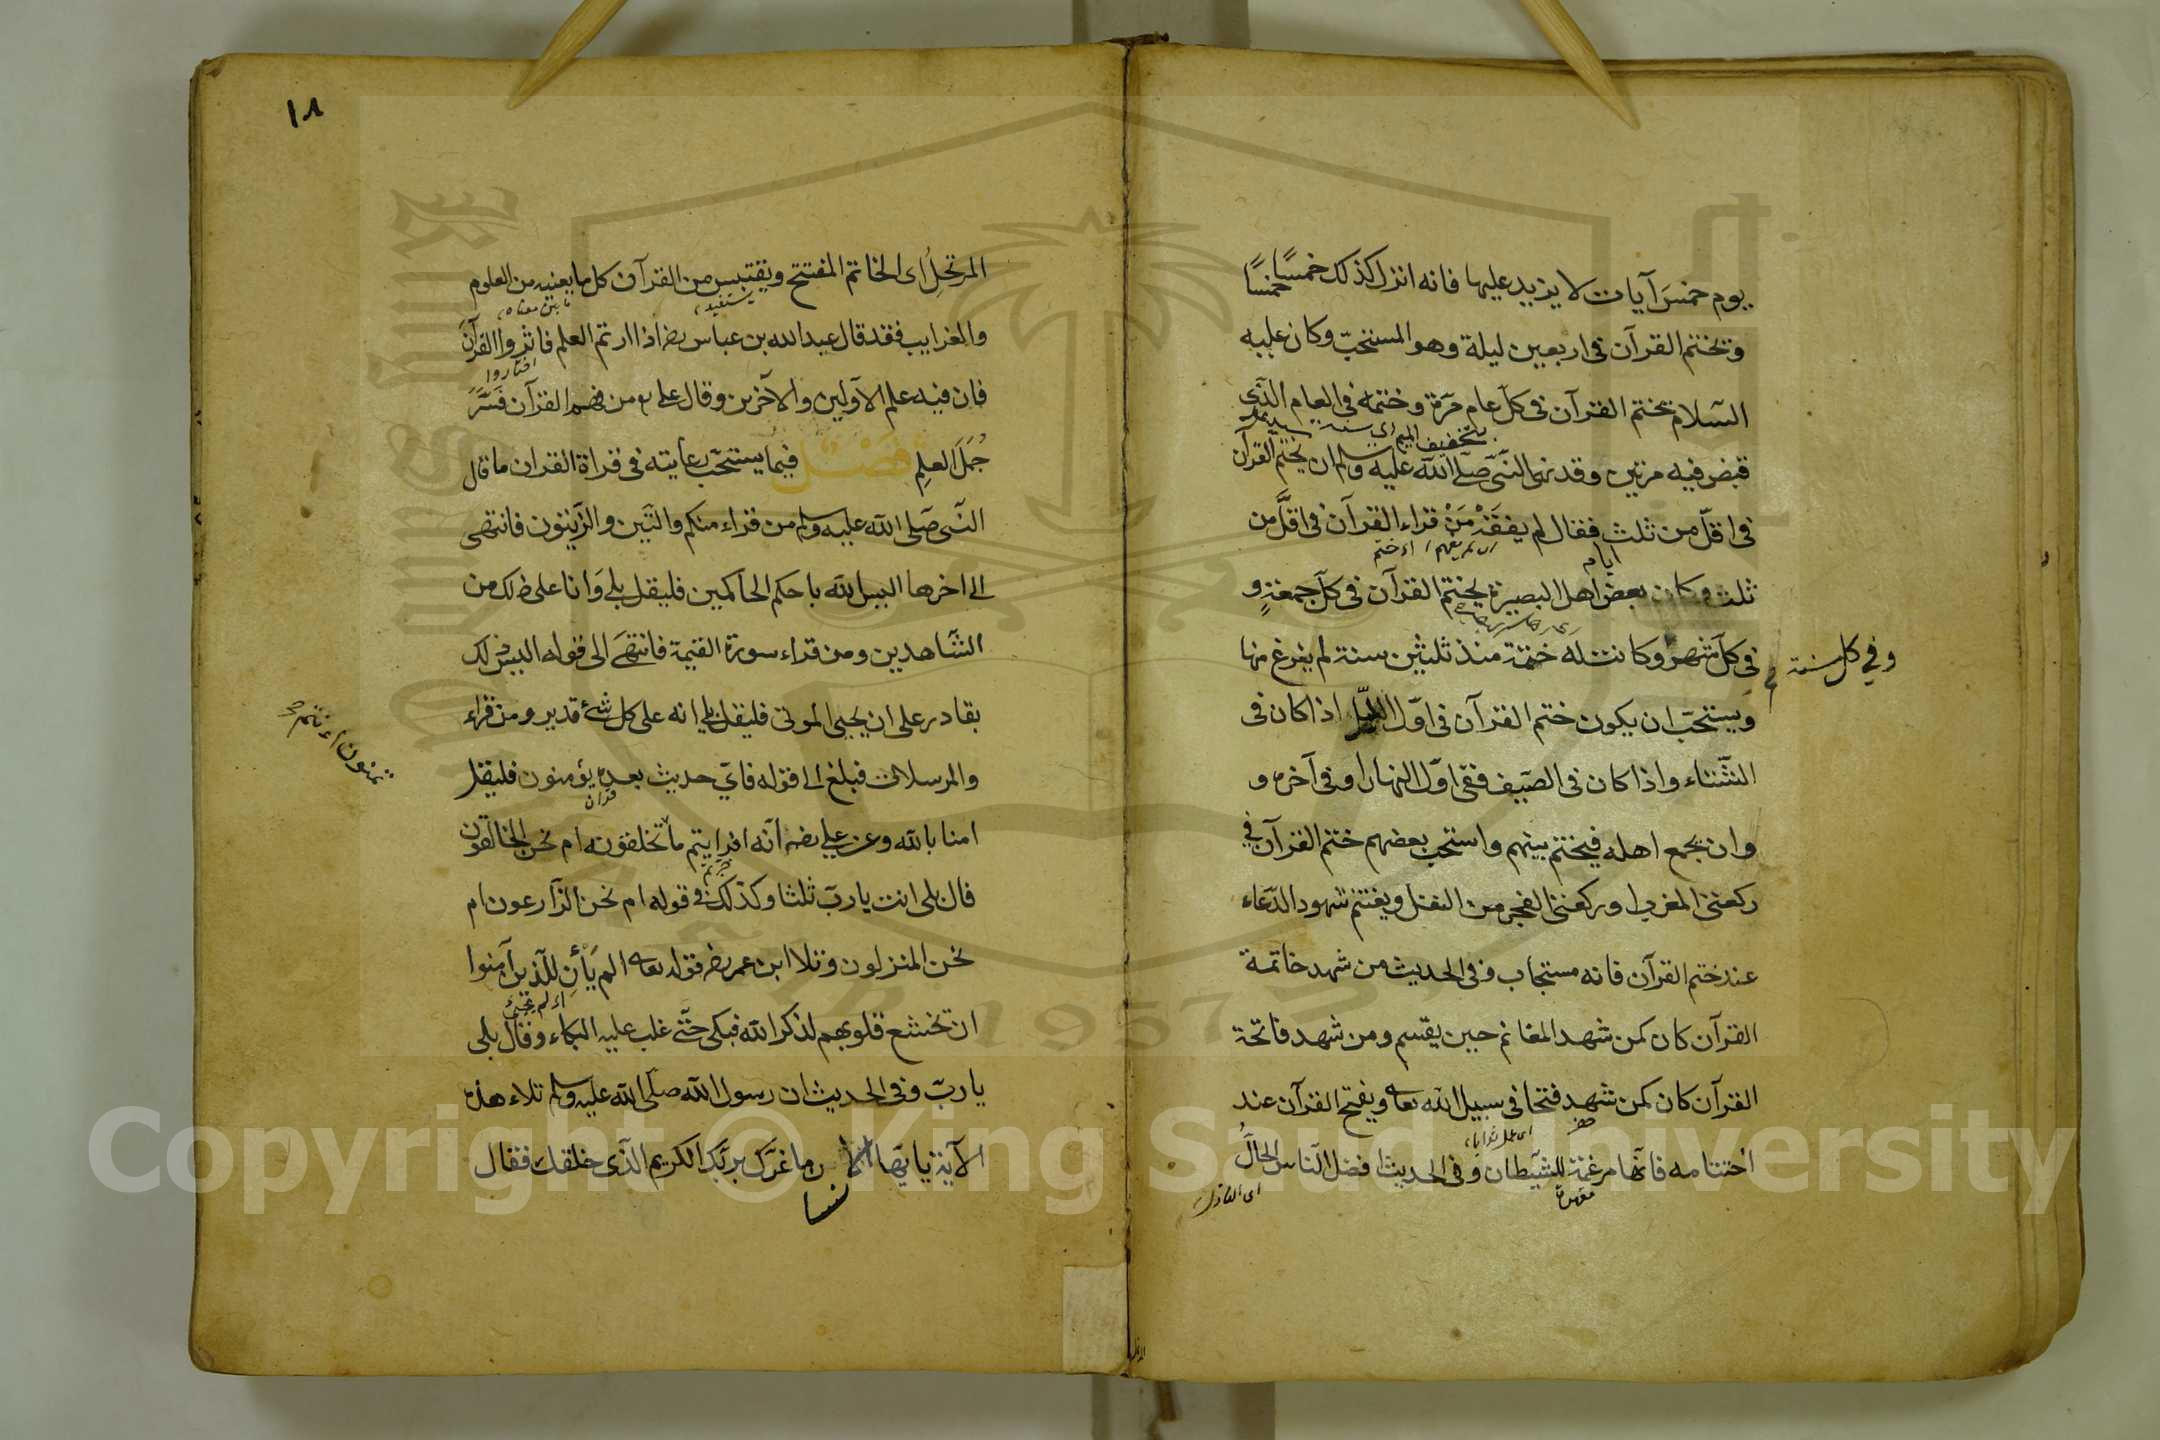 يوم خمسَ آيات لا يزيد عليها فانه انزل كذلك خمسًا خمسًا
ويختم القرآن فى اربعين ليلة وهو المستحبّ وكان عليه
السّلام يختم القرآن فى كلّ عام مرّة وختمه فى العام الّذى
قبض فيه مرتين وقد نهى النّبىّ صلّى اللّه عليه وسلم ان يختم القرآن
فى اقلّ من ثلث فقال لم يفقَهْ مَنْ قراء القرآن فى اقلَّ من
ايام
اى لم يفهم
اى ختم
ثلث وكان بعض اهل البصيرة يختم القرآن فى كلّ جمعةٍ و
فى كلّ شهر وكانت له ختمة منذ ثلثين سنة لم يفرغ منها
وفي كل سنة
ويستحبّ ان يكون ختم القرآن فى اوّل الليل اذا كان فى
الشّتاء واذا كان فى الصّيف ففى اوّل النهار او فى آخره و
وان يجمع اهله فيختم بينهم واستحب بعضهم ختم القرآن في
ركعتى المغرب او ركعتى الفجر من النفل ويغتنم شهود الدّعاء
عند ختم القرآن فانه مستجاب وفى الحديث من شهد خاتمة
القرآن كان كمن شهد المغانم حين يقسم ومن شهد فاتحة
القرآن كان كمن شهد فتحا فى سبيل اللّه تعا ويفتح القرآن عند
اختتامه فانّها مرغمة للشيّطان وفى الحديث افضل النّاس الحالُّ
١٨
المرتحلِ اى الخاتم المفتتح ويقتبس من القرآن كل ما يعنيه من العلوم
يستفيد
والغرايب فقد قال عبد الله بن عباس رضه اذا ارتم العلم فاثروا القرآن
فان فيه علم الاوّلين والآخرين وقال على ع من فهم القرآن فسّر
جُمَلَ العلمِ فصل فيما يستحبّ رعايته فى قراة القران ما قال
النّبى صلى اللّه عليه وسلم من قراء منكم والتّين والزّيتون فانتهى
الى اخرها اليس اللّه باحكم الحاكمين فليقل بلى وَانا على ذلك من
الشّاهدين ومن قراء سورة القيمة فانتهَى الى قوله اليس ذلك
بقادر على ان يحيى الموتى فليقل بلى انه على كل شئ قدير ومن قراء
والمرسلات فبلغ الى قوله فاىّ حديث بعده يؤمنون فليقل
قران
امنا بالله وعن علي رضه انّه افرايتم ما تخلقونه ام نحن الخالقون
قال بلى انت يا ربّ ثلثا وكذلك فى قوله ام نحن الزّارعون ام
نحن المنزلون وتلا ابن عمر رضه قوله تعا الم يَأنِ للّذين آمنوا
ان تخشع قلوبهم لذكر اللّه فبكى حتّى غلب عليه البكاء وقال بلى
يا ربّ وفى الحديث ان رسول اللّه صلّى اللّه عليه وسلم تلاء هذه
الآية يا ايّها الانسان ما غرّك بربّك الكريم الّذى خلقك فقال
Copyright © King Saud University
1957